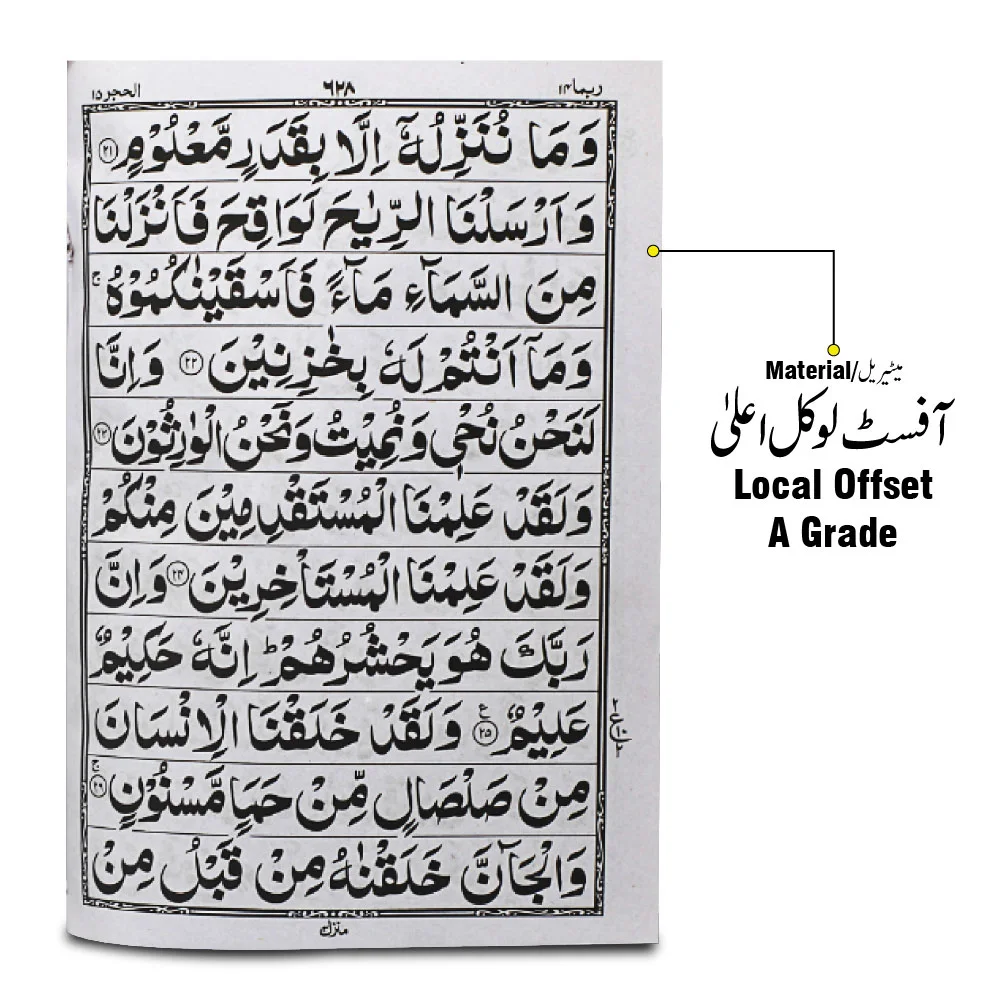 ربما ۱۴ ۶۲۸ الحجر ۱۵
وَمَا نُنَزِّلُهٗۤ اِلَّا بِقَدَرٍ مَّعْلُوْمٍ ۲۱
وَاَرْسَلْنَا الرِّيٰحَ لَوَاقِحَ فَاَنْزَلْنَا
مِنَ السَّمَآءِ مَآءً فَاَسْقَيْنٰكُمُوْهُ ۚ
وَمَاۤ اَنْتُمْ لَهٗ بِخٰزِنِيْنَ ۲۲ وَاِنَّا
لَنَحْنُ نُحْيٖ وَنُمِيْتُ وَنَحْنُ الْوٰرِثُوْنَ ۲۳
وَلَقَدْ عَلِمْنَا الْمُسْتَقْدِمِيْنَ مِنْكُمْ
وَلَقَدْ عَلِمْنَا الْمُسْتَاْخِرِيْنَ ۲۴ وَاِنَّ
رَبَّكَ هُوَ يَحْشُرُهُمْ ؕ اِنَّهٗ حَكِيْمٌ
عَلِيْمٌ ۲۵ ع وَلَقَدْ خَلَقْنَا الْاِنْسَانَ
مِنْ صَلْصَالٍ مِّنْ حَمَاٍ مَّسْنُوْنٍ ۲۶ ۚ
وَالْجَآنَّ خَلَقْنٰهُ مِنْ قَبْلُ مِنْ
Material/میٹیریل
آفسٹ لوکل اعلیٰ
Local Offset
A Grade